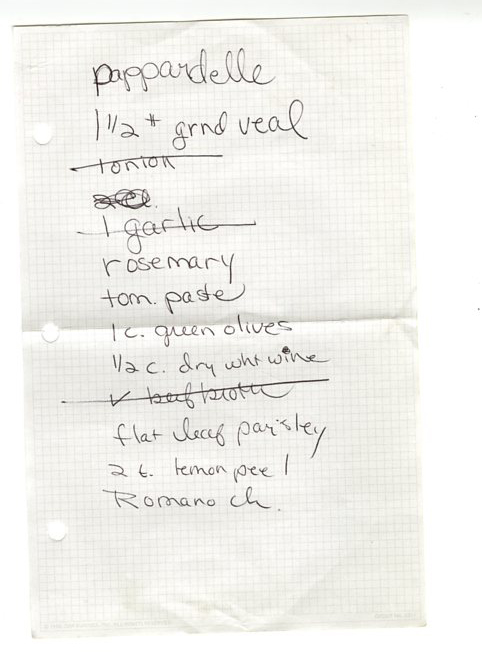 pappardelle
1 1/2 # grnd veal
1 onion
1 garlic
rosemary
tom. paste
1 c. green olives
1/2 c. dry wht wine
✓ beef broth
flat leaf parsley
2 t. lemon peel
Romano ch.